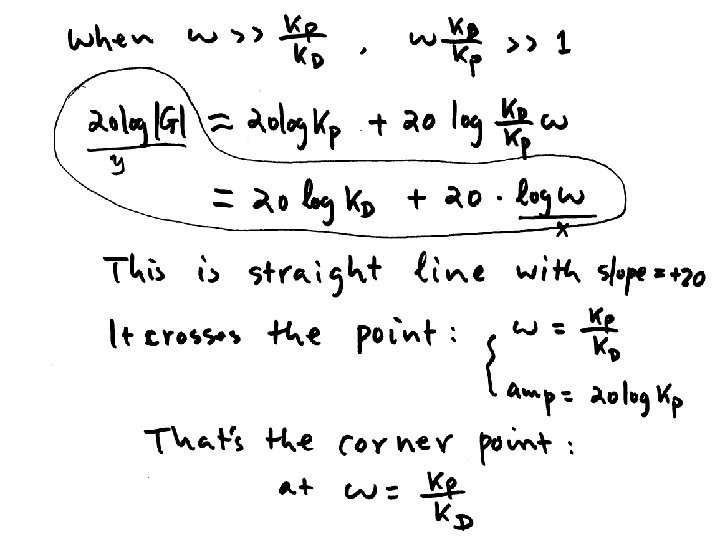 when ω >> Kp/KD , ω KD/Kp >> 1
20log|G| = 20logKp + 20 log KD/Kp ω
y
= 20 log KD + 20 · log ω
x
This is straight line with slope = +20
It crosses the point : { ω = Kp/KD
amp = 20log Kp
That's the corner point :
at ω = Kp/KD